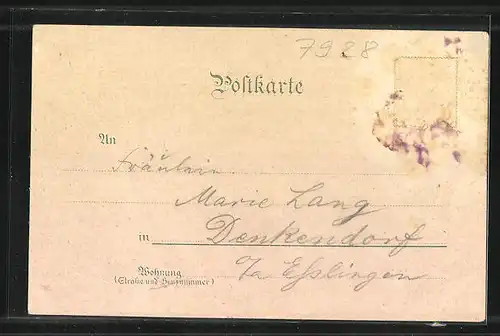 7928
Postkarte
An
Fräulein
Marie Lang
in Denkendorf
Wohnung
(Straße und Hausnummer)
Esslingen